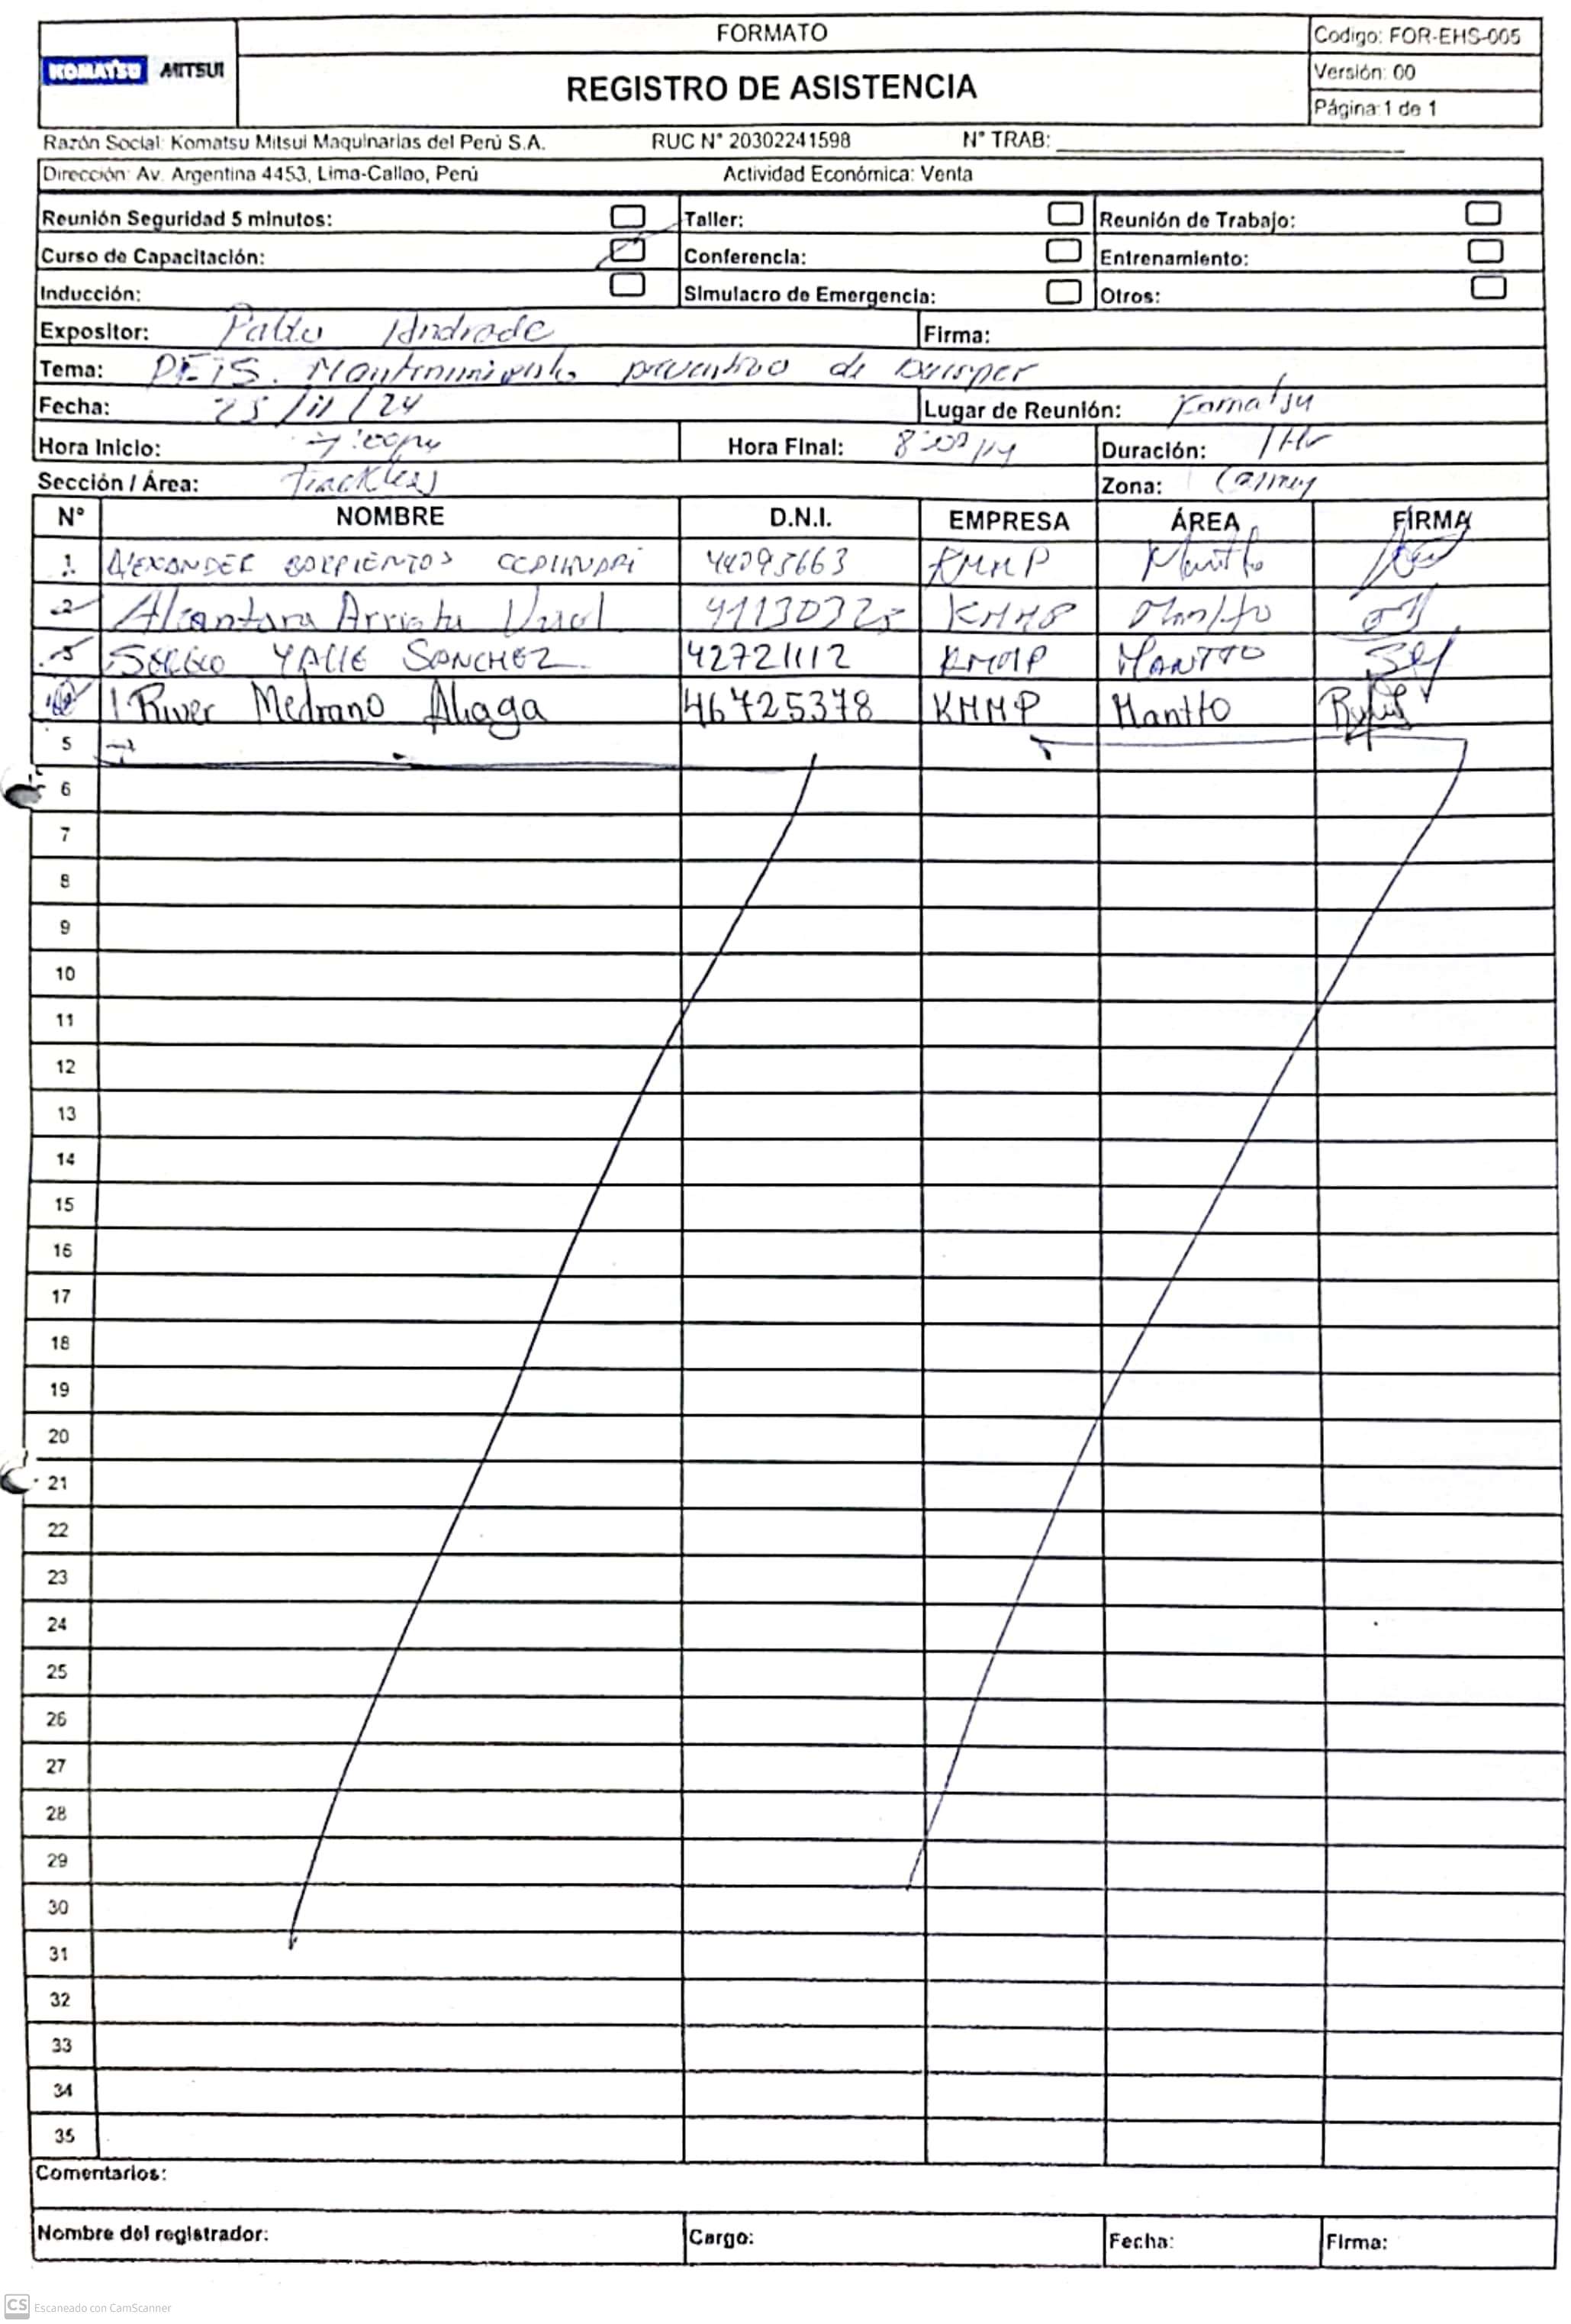 FORMATO
Codigo: FOR-EHS-005
KOMATSU MITSUI
REGISTRO DE ASISTENCIA
Versión: 00
Página:1 de 1
Razón Social: Komatsu Mitsui Maquinarias del Perú S.A. RUC N° 20302241598 N° TRAB:
Dirección: Av. Argentina 4453, Lima-Callao, Perú Actividad Económica: Venta
Reunión Seguridad 5 minutos: Taller: Reunión de Trabajo:
Curso de Capacitación: Conferencia: Entrenamiento:
Inducción: Simulacro de Emergencia: Otros:
Expositor: Andrade Firma:
Tema: PETS. Mantenimiento preventivo de
Fecha: 25/11/24 Lugar de Reunión: Komatsu
Hora Inicio: 7:00pm Hora Final: 8:00pm Duración: 1Hr
Sección / Área: Trackless Zona:
N° NOMBRE D.N.I. EMPRESA ÁREA FIRMA
1 ALEXANDER KMMP Mantto
2 Alcantara KMMP Mantto
3 SERGIO YALLE SANCHEZ 42721112 KMMP MANTTO
River Medrano Aliaga 46725378 KMMP Mantto
5
6
7
8
9
10
11
12
13
14
15
16
17
18
19
20
21
22
23
24
25
26
27
28
29
30
31
32
33
34
35
Comentarios:
Nombre del registrador: Cargo: Fecha: Firma:
CS Escaneado con CamScanner